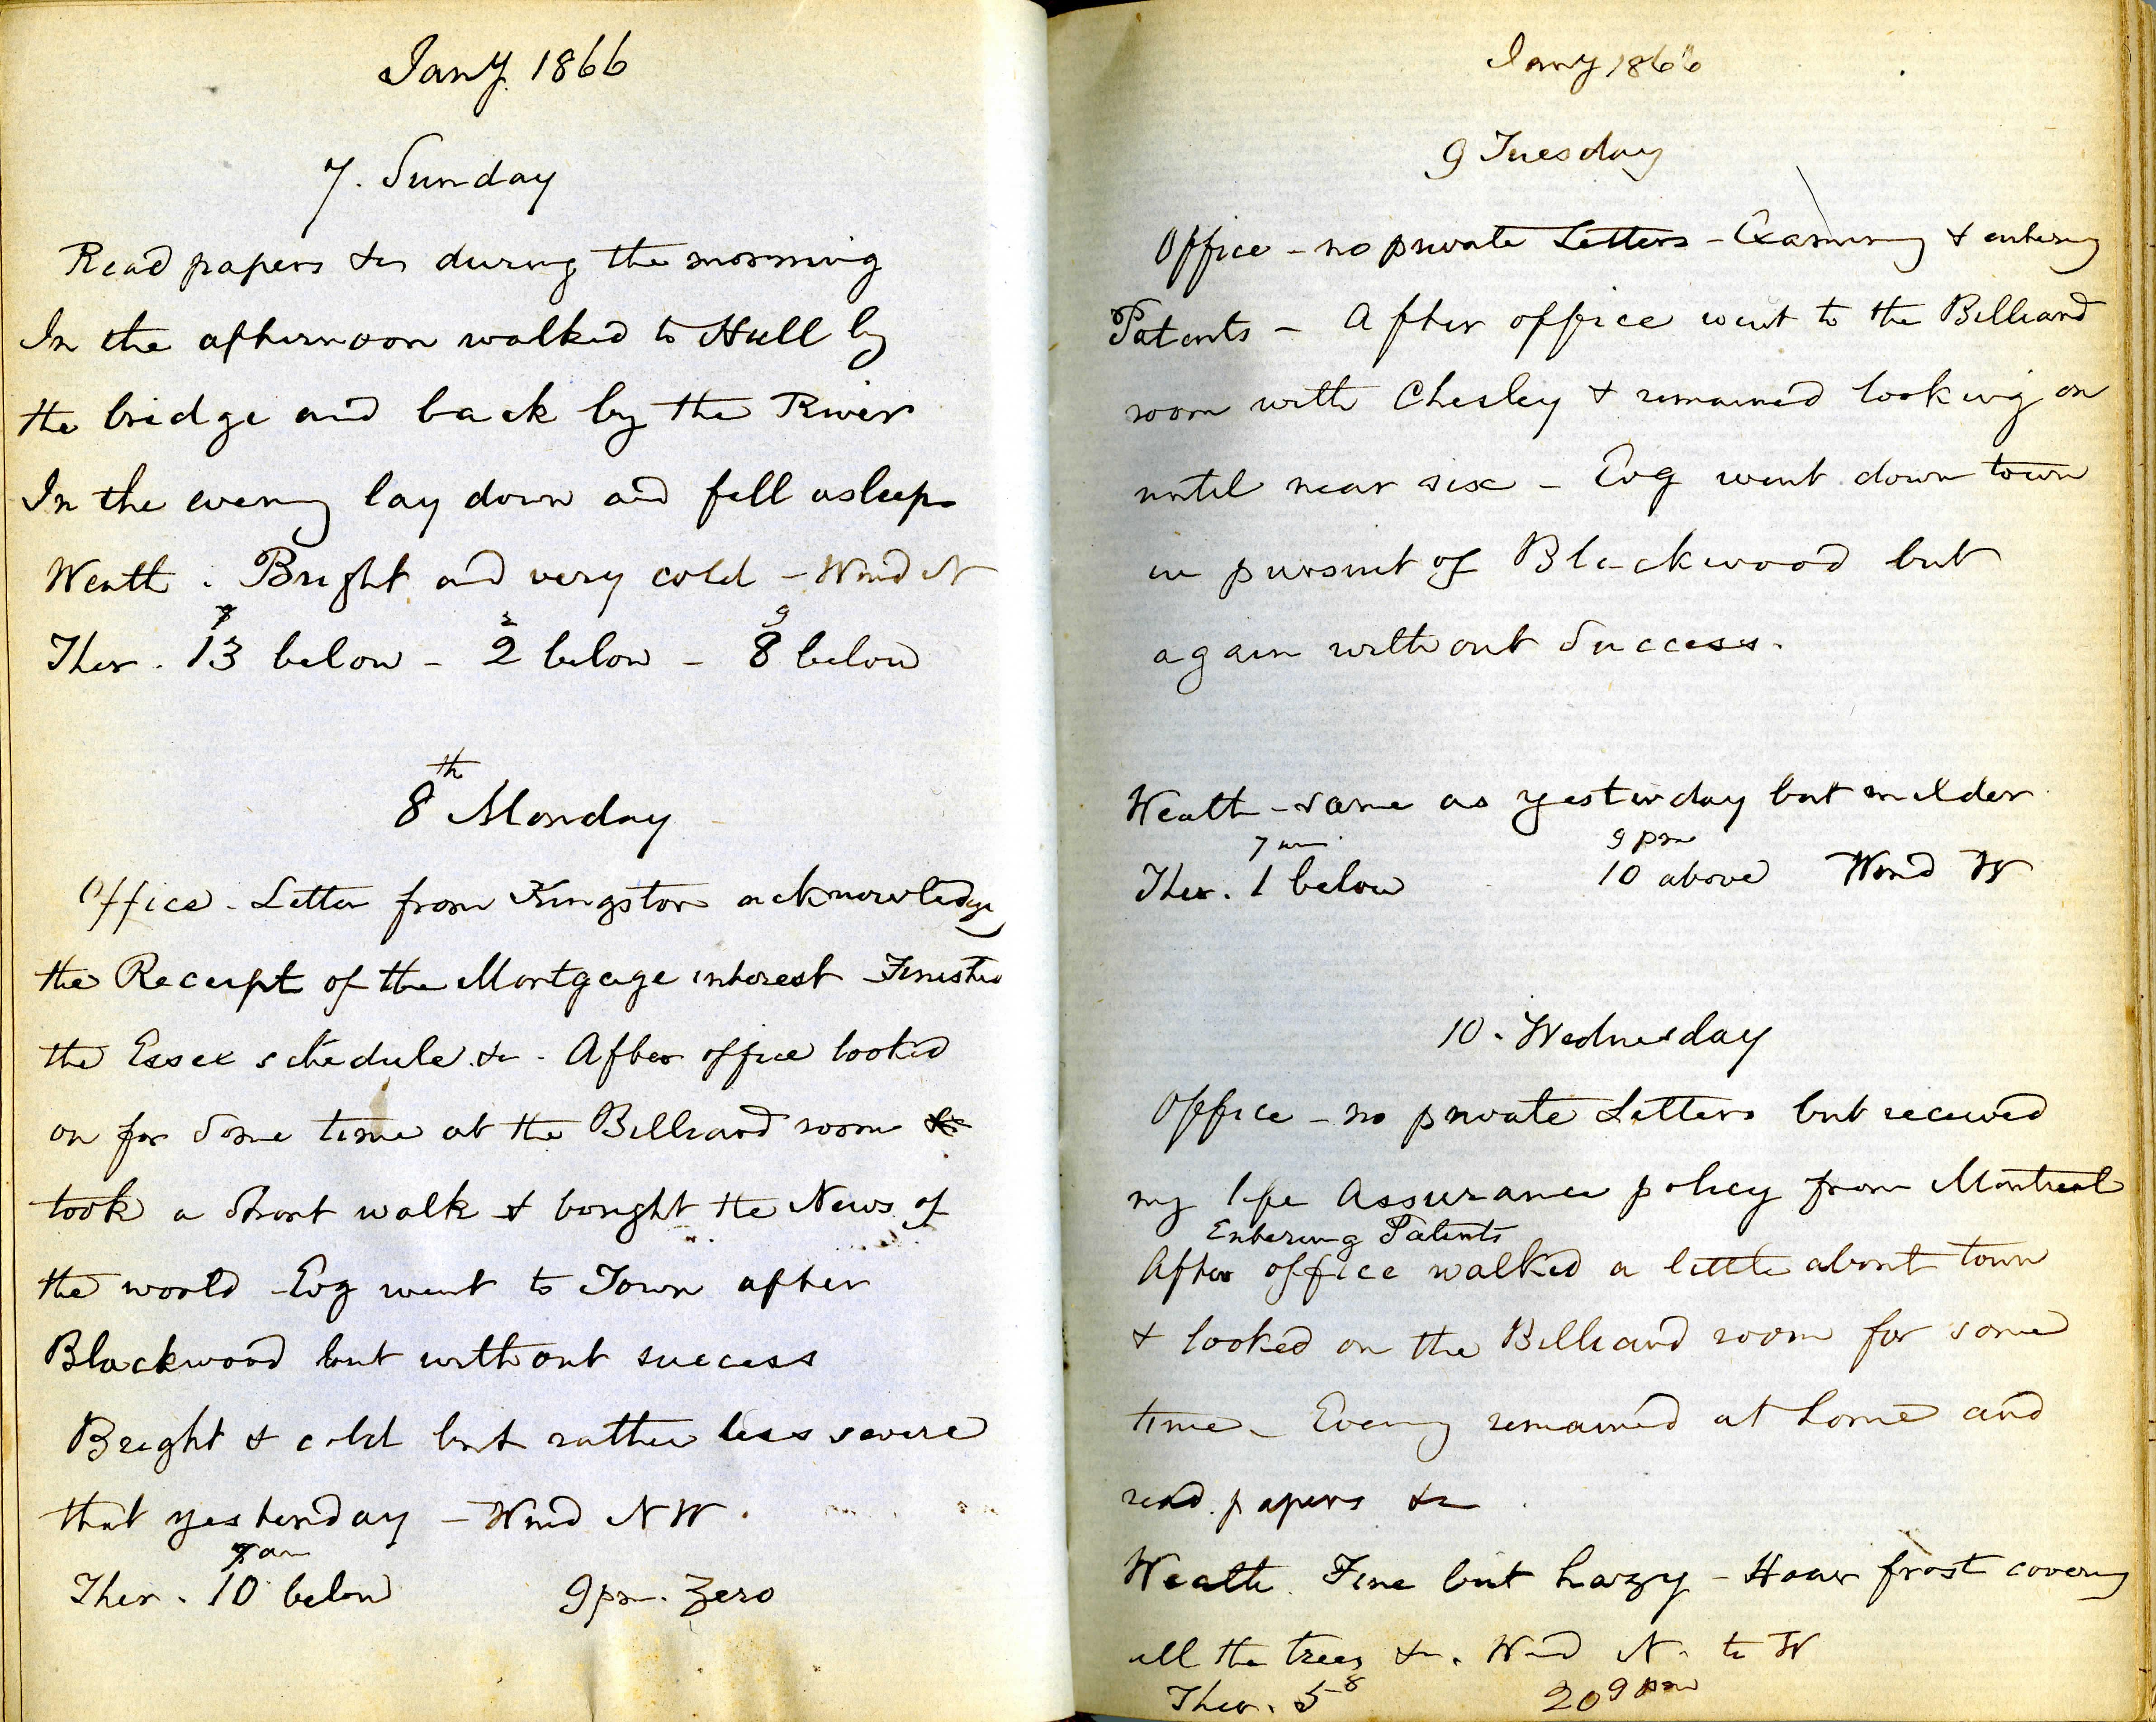 Jany. 1866
7. Sunday
Read papers &c during the morning
In the afternoon walked to Hull by
the bridge and back by the River
In the evening lay down and fell asleep
Weath. Bright and very cold - Wind N
7 2 9
Ther. 13 below - 2 below - 8 below
8th Monday
Office. Letter from Kingston acknowledg
the Receipt of the Mortgage interest Finished
the Essex schedule &c. After office looked
on for some time at the Billiard room
took a short walk & bought the News of
the world Evg went to Town after
Blackwood but without success
Bright & cold but rather less severe
that yesterday - Wind NW.
7 am
Ther. 10 below 9 pm. Zero
Jany 1866
9 Tuesday
Office - no private Letters - Examining & entering
Patents - After office went to the Billiard
room with Chesley & remained looking on
until near six - Evg went down town
in pursuit of Blackwood but
again without success.
Weath - same as yesterday but milder
7 am 9 pm
Ther. 1 below 10 above Wind W
10. Wednesday
Office - no private Letters but received
my life Assurance policy from Montreal
Entering Patents
After office walked a little about town
& looked on the Billiard room for some
time - Evening remained at home and
read papers &c
Weath. Fine but hazy - Hoar frost covering
all the trees &c. Wind N. to W
Ther. 5 8 20 9 pm